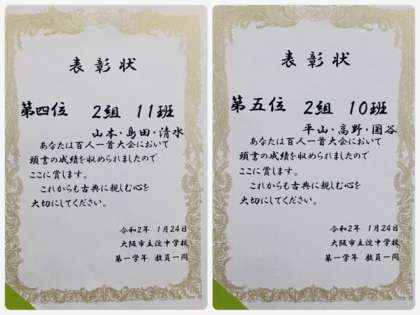 表彰状
第四位 2組 11班
山本・島田・清水
あなたは百人一首大会において
頭書の成績を収められましたので
ここに賞します。
これからも古典に親しむ心を
大切にしてください。
令和2年 1月24日
大阪市立淀中学校
第一学年 教員一同
表彰状
第五位 2組 10班
平山・高野・国谷
あなたは百人一首大会において
頭書の成績を収められましたので
ここに賞します。
これからも古典に親しむ心を
大切にしてください。
令和2年 1月24日
大阪市立淀中学校
第一学年 教員一同